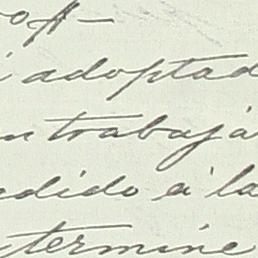 i adoptad
n trabajá
dido á la
termine